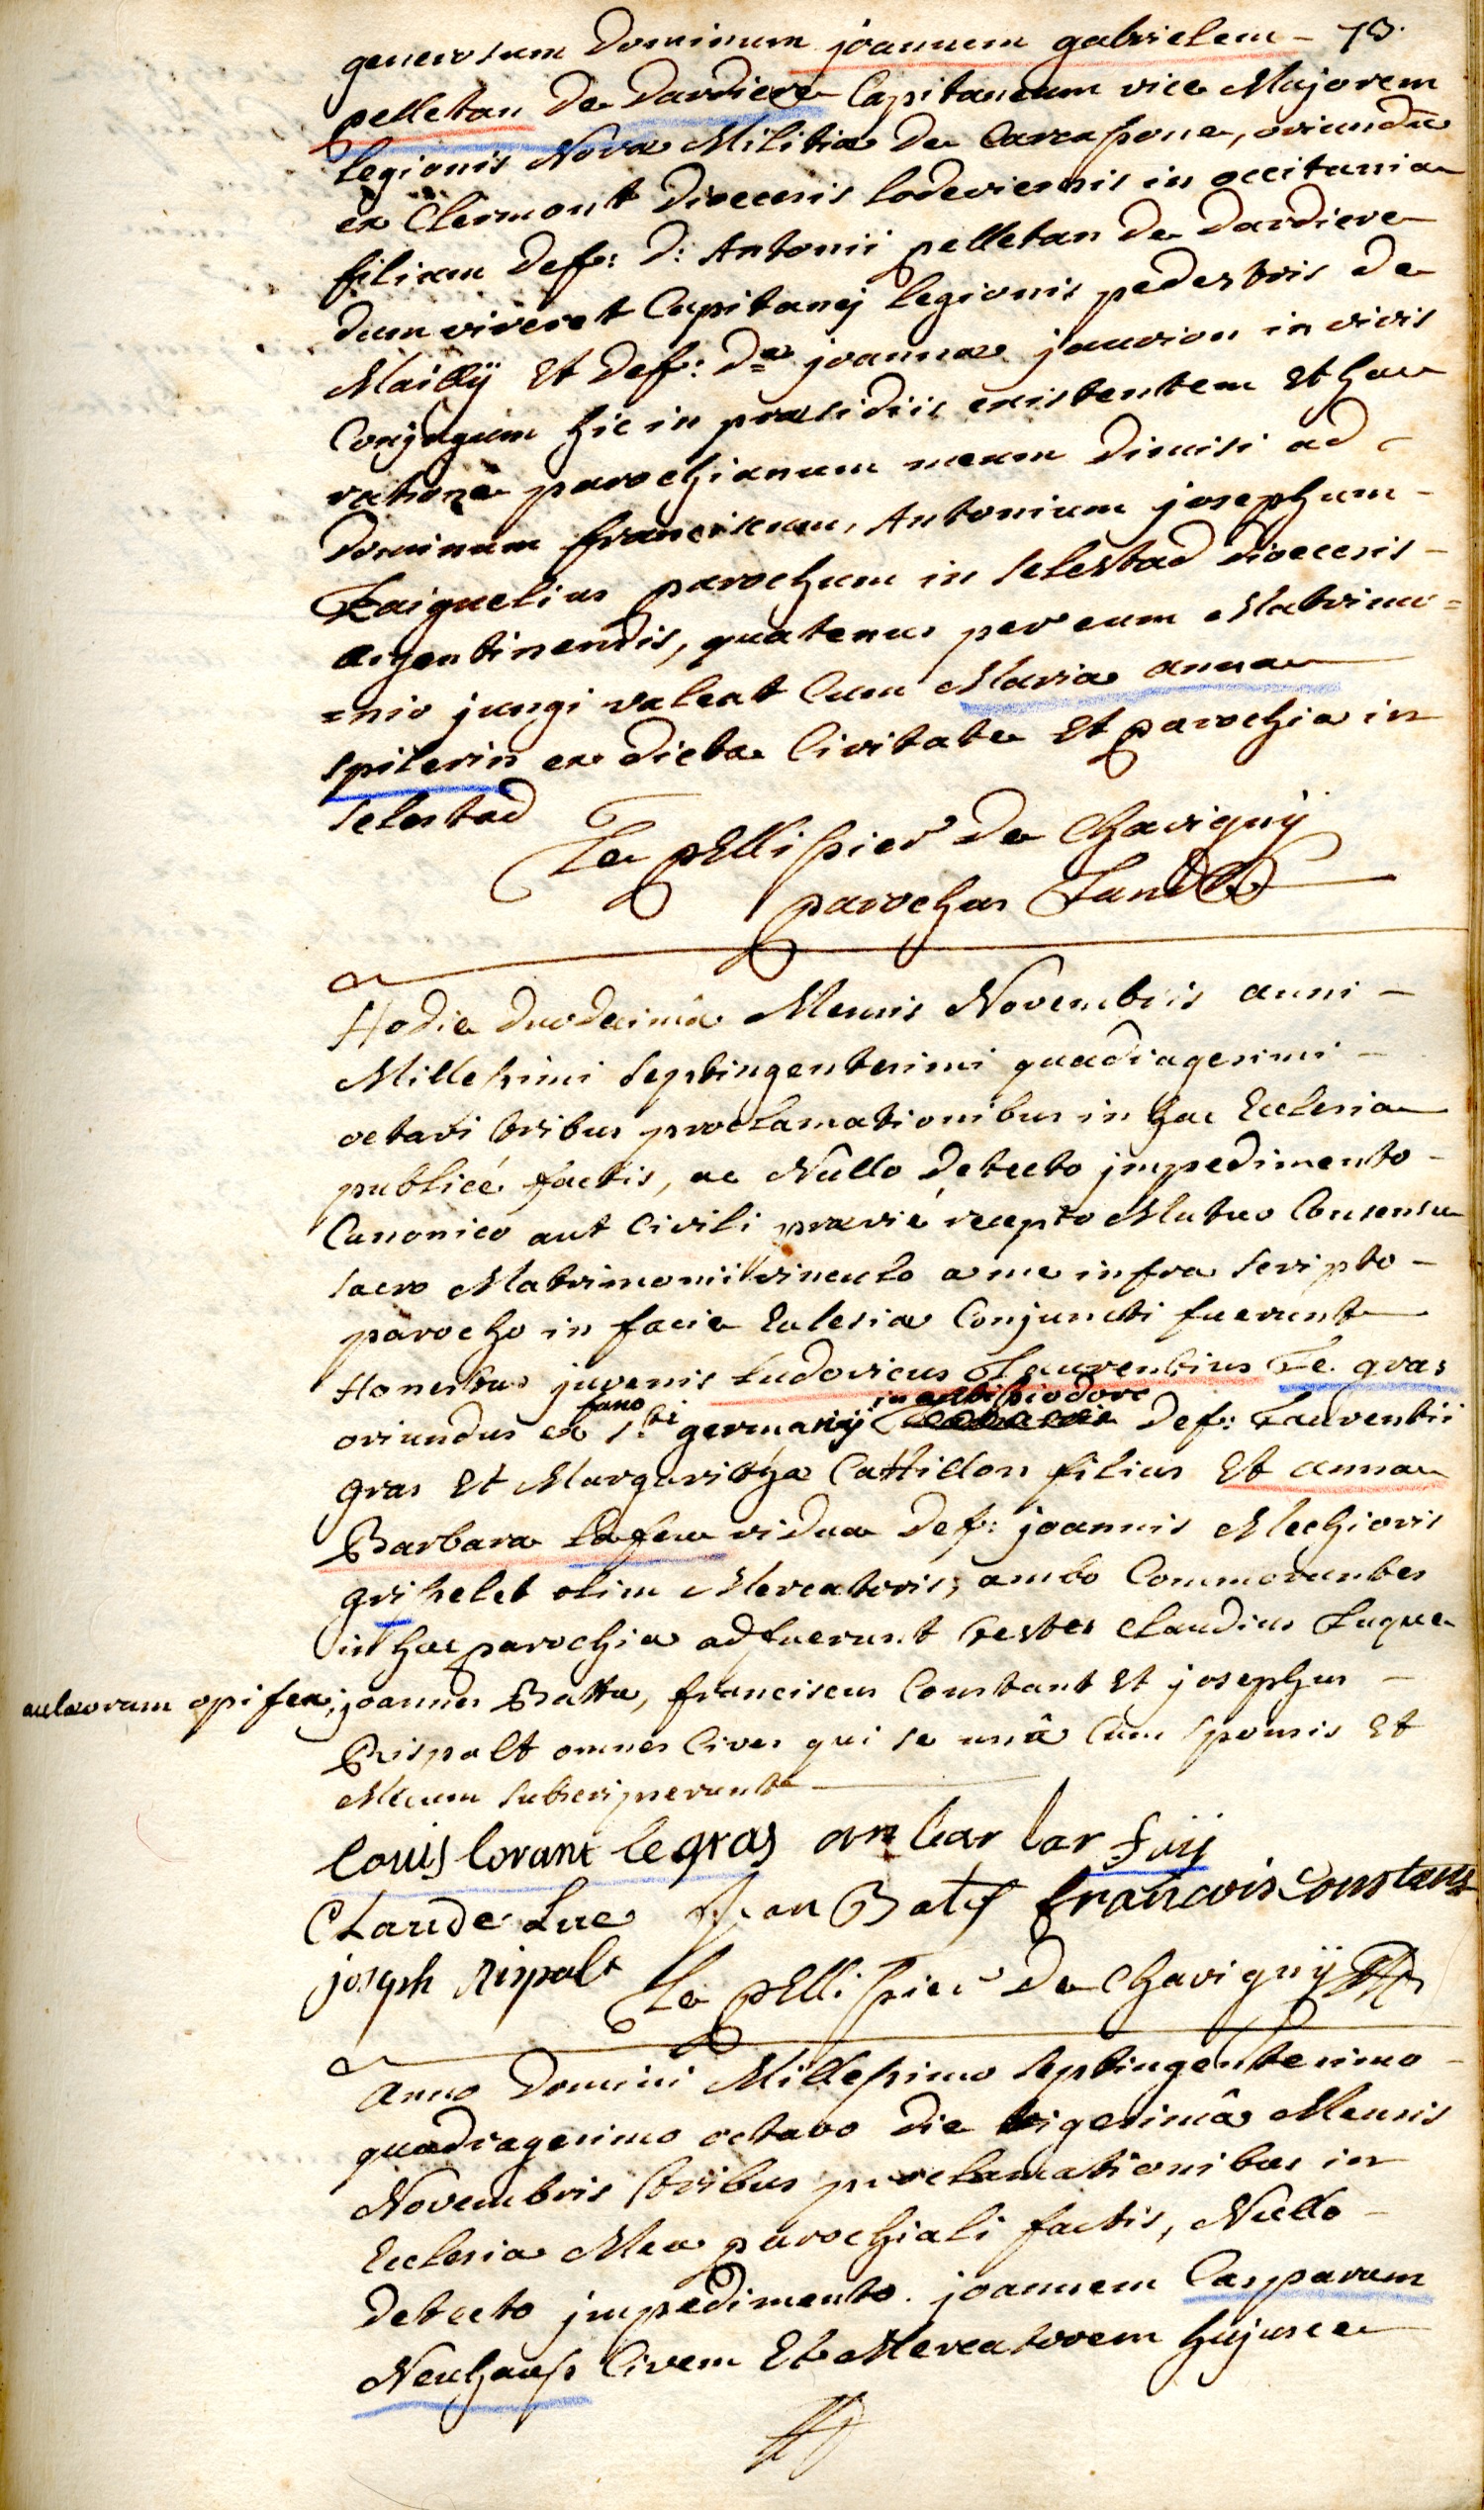 generosum Dominum joannem gabrielem - 73.
pelletan De Dardiere Capitaneum vice Majorem
legionis Nova Militia De Carcassone, oriundū
ex Clermont Dioecesis lodeviensis in occitania
filium Def: D: Antonii pelletan De Dardiere
dum viveret Capitanej legionis pedestris de
Mailly Et Def: Dae joanna jauvion in vivis
Conjugum hic in præsidiis existentem Et hac
ratione parochianum meum Dimisi ad
Dominum franciscum, Antonium josephum -
Zaiguelius parochum in selestad Dioecesis -
argentinensis, quatenus per eum Matrimo=
=nio jungi valeat Cum Maria anna
spilerin ex dicta Civitate Et parochia in
selestad
Le pEllissier De Chavigny
parochus Land
Hodie duodecimâ Mensis Novembris anni -
Millesimi septingentesimi quadragesimi -
octavi tribus proclamationibus in hac Ecclesia
publicé factis, ac Nullo detecto jmpedimento -
Canonico aut Civili prævié recepto Mutuo Consensu
sacro Matrimonii vinculo a me infra scripto -
parocho in facie Ecclesia Conjuncti fuerunt
Honestus juvenis Ludovicus Laurentius Le gras
fano in
oriundus ex S.ti germanij Def: Laurentii
gras Et Margaritha Cattillon filius Et anna
Barbara lafeu vidua Def: joannis Mechioris
grihelet olim Mercatoris, ambo Commorantes
in hac parochia adfuerunt testes Claudius Luque
aulaorum opifex, joannes Batta, franciscus Constant Et josephus -
Rispalt omnes Cives qui se unâ Cum sponsis Et
Mecum subscripserunt
louis lorant le gras an bar bar fuij
Claude Luc jean Batis francois Constans
joseph Rispalt Le pEllissier De Chavigny
anno Domini Millesimo septingentesimo -
quadragesimo octavo die vigesimâ Mensis
Novembris tribus proclamationibus in
Ecclesia Mea parochiali factis, Nullo -
detecto jmpedimento. joannem Casparum
Neuhauss Civem Et Mercatorem hujusce